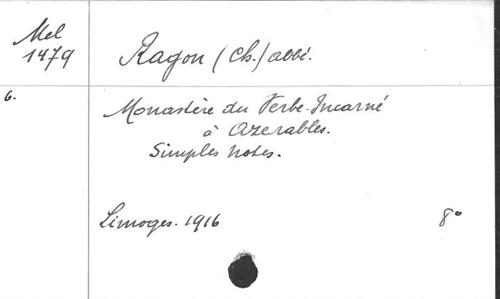 Mel
1479
Ragon (Ch.) abbé.
6.
Monastère du Verbe-Incarné
à Azerables.
Simples Notes.
Limoges. 1916
8°